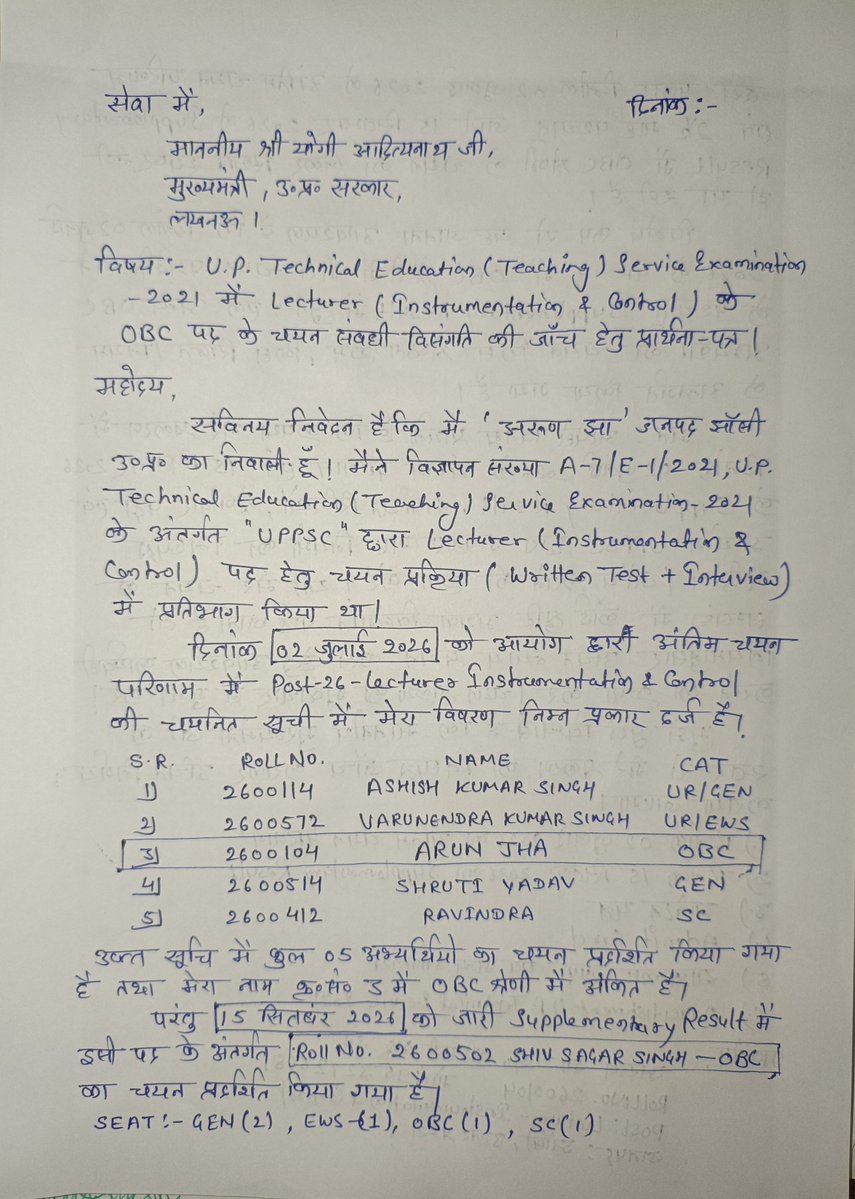 सेवा में, दिनांक :-
माननीय श्री योगी आदित्यनाथ जी,
मुख्यमंत्री, उ०प्र० सरकार,
लखनऊ।
विषय :- U.P. Technical Education (Teaching) Service Examination
-2021 में Lecturer (Instrumentation & Control) के
OBC पद के चयन संबधी विसंगति की जाँच हेतु प्रार्थना-पत्र।
महोदय,
सविनय निवेदन है कि मै 'अरूण झा' जनपद झाँसी
उ०प्र० का निवासी हूँ। मैने विज्ञापन संख्या A-7/E-1/2021, U.P.
Technical Education (Teaching) Service Examination-2021
के अंतर्गत "UPPSC" द्वारा Lecturer (Instrumentation &
Control) पद हेतु चयन प्रक्रिया (Written Test + Interview)
में प्रतिभाग किया था।
दिनांक 02 जुलाई 2026 को आयोग द्वारा अंतिम चयन
परिणाम में Post-26-Lecturer Instrumentation & Control
की चयनित सूची में मेरा विवरण निम्न प्रकार दर्ज है।
S.R. ROLL NO. NAME CAT
1) 2600114 ASHISH KUMAR SINGH UR/GEN
2) 2600572 VARUNENDRA KUMAR SINGH UR/EWS
3) 2600104 ARUN JHA OBC
4) 2600514 SHRUTI YADAV GEN
5) 2600412 RAVINDRA SC
उक्त सूचि में कुल 05 अभ्यर्थियो का चयन प्रदर्शित किया गया
है तथा मेरा नाम क्र०सं० 3 में OBC श्रेणी में अंकित है।
परंतु 15 सितबंर 2026 को जारी Supplementary Result में
इसी पद के अंतर्गत Roll No. 2600502 SHIV SAGAR SINGH - OBC
का चयन प्रदर्शित किया गया है।
SEAT :- GEN (2), EWS-(1), OBC (1), SC (1)